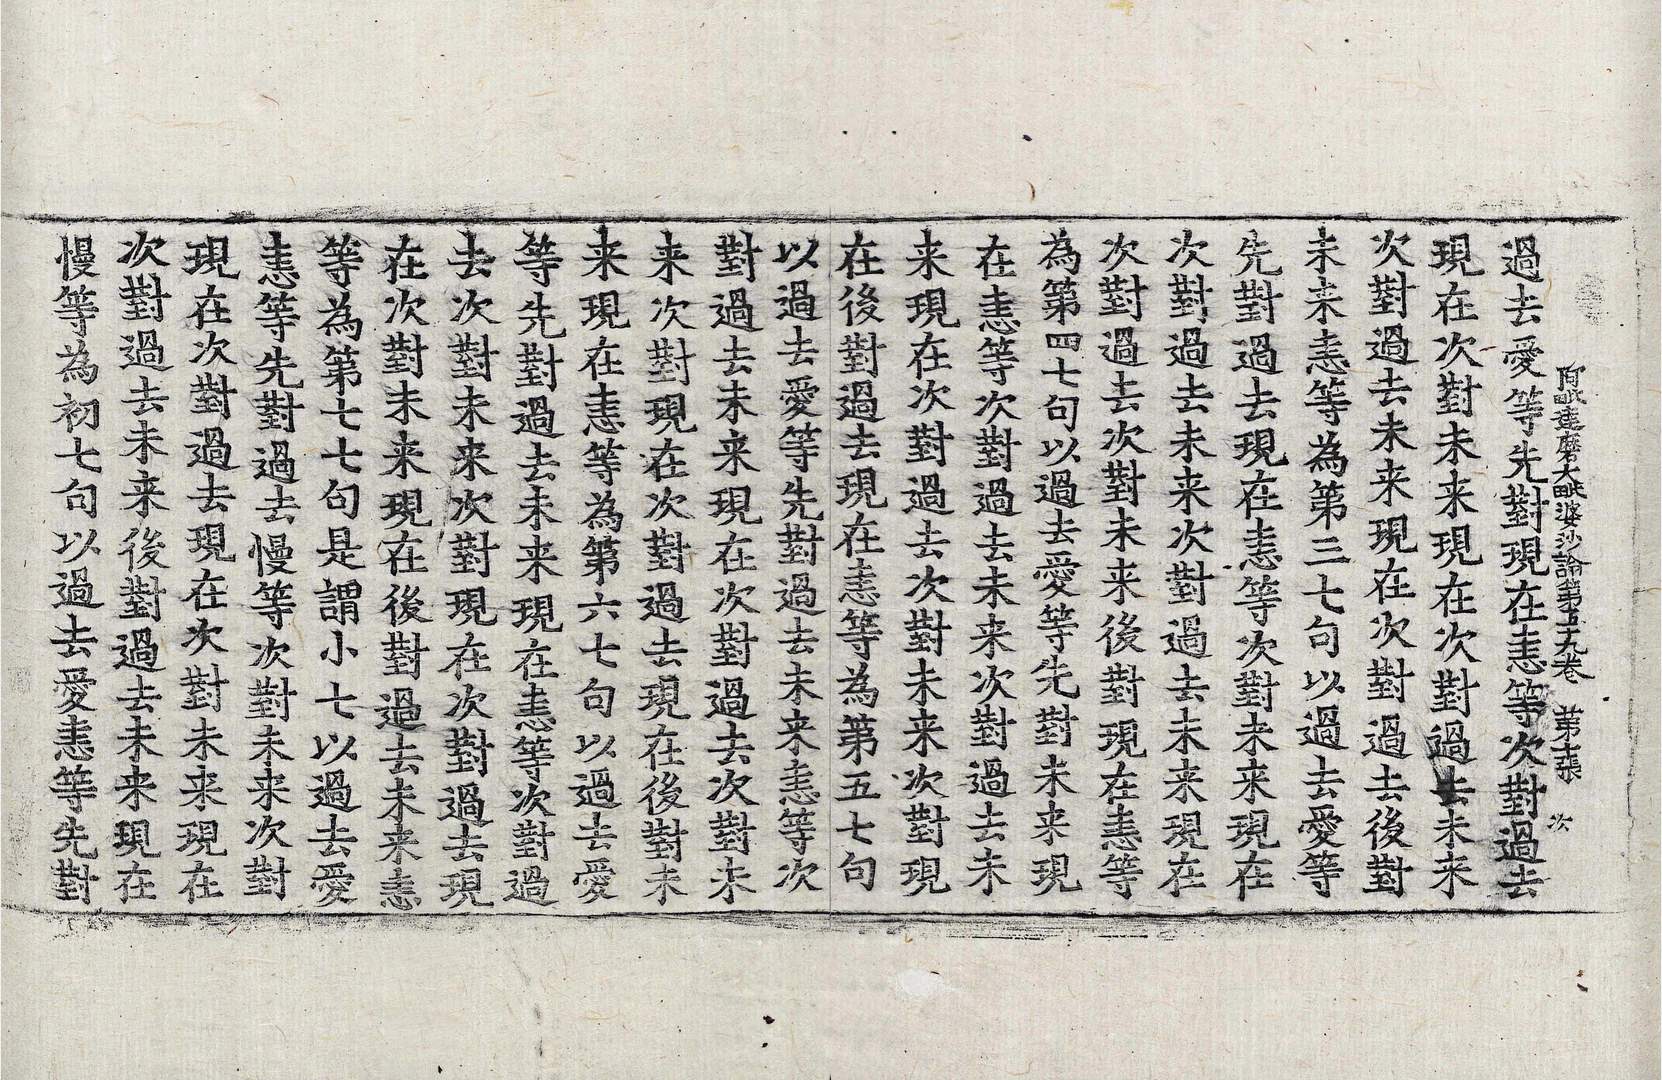 阿毗達磨大毗婆沙論第五十九卷 第十一張 次
過去愛等先對現在恚等次對過去
現在次對未来現在次對過去未来
次對過去未来現在次對過去後對
未来恚等為第三七句以過去愛等
先對過去現在恚等次對未来現在
次對過去未来次對過去未来現在
次對過去次對未来後對現在恚等
為第四七句以過去愛等先對未来現
在恚等次對過去未来次對過去未
来現在次對過去次對未来次對現
在後對過去現在恚等為第五七句
以過去愛等先對過去未来恚等次
對過去未来現在次對過去次對未
来次對現在次對過去現在後對未
来現在恚等為第六七句以過去愛
等先對過去未来現在恚等次對過
去次對未来次對現在次對過去現
在次對未来現在後對過去未来恚
等為第七七句是謂小七以過去愛
恚等先對過去慢等次對未来次對
現在次對過去現在次對未来現在
次對過去未来後對過去未来現在
慢等為初七句以過去愛恚等先對